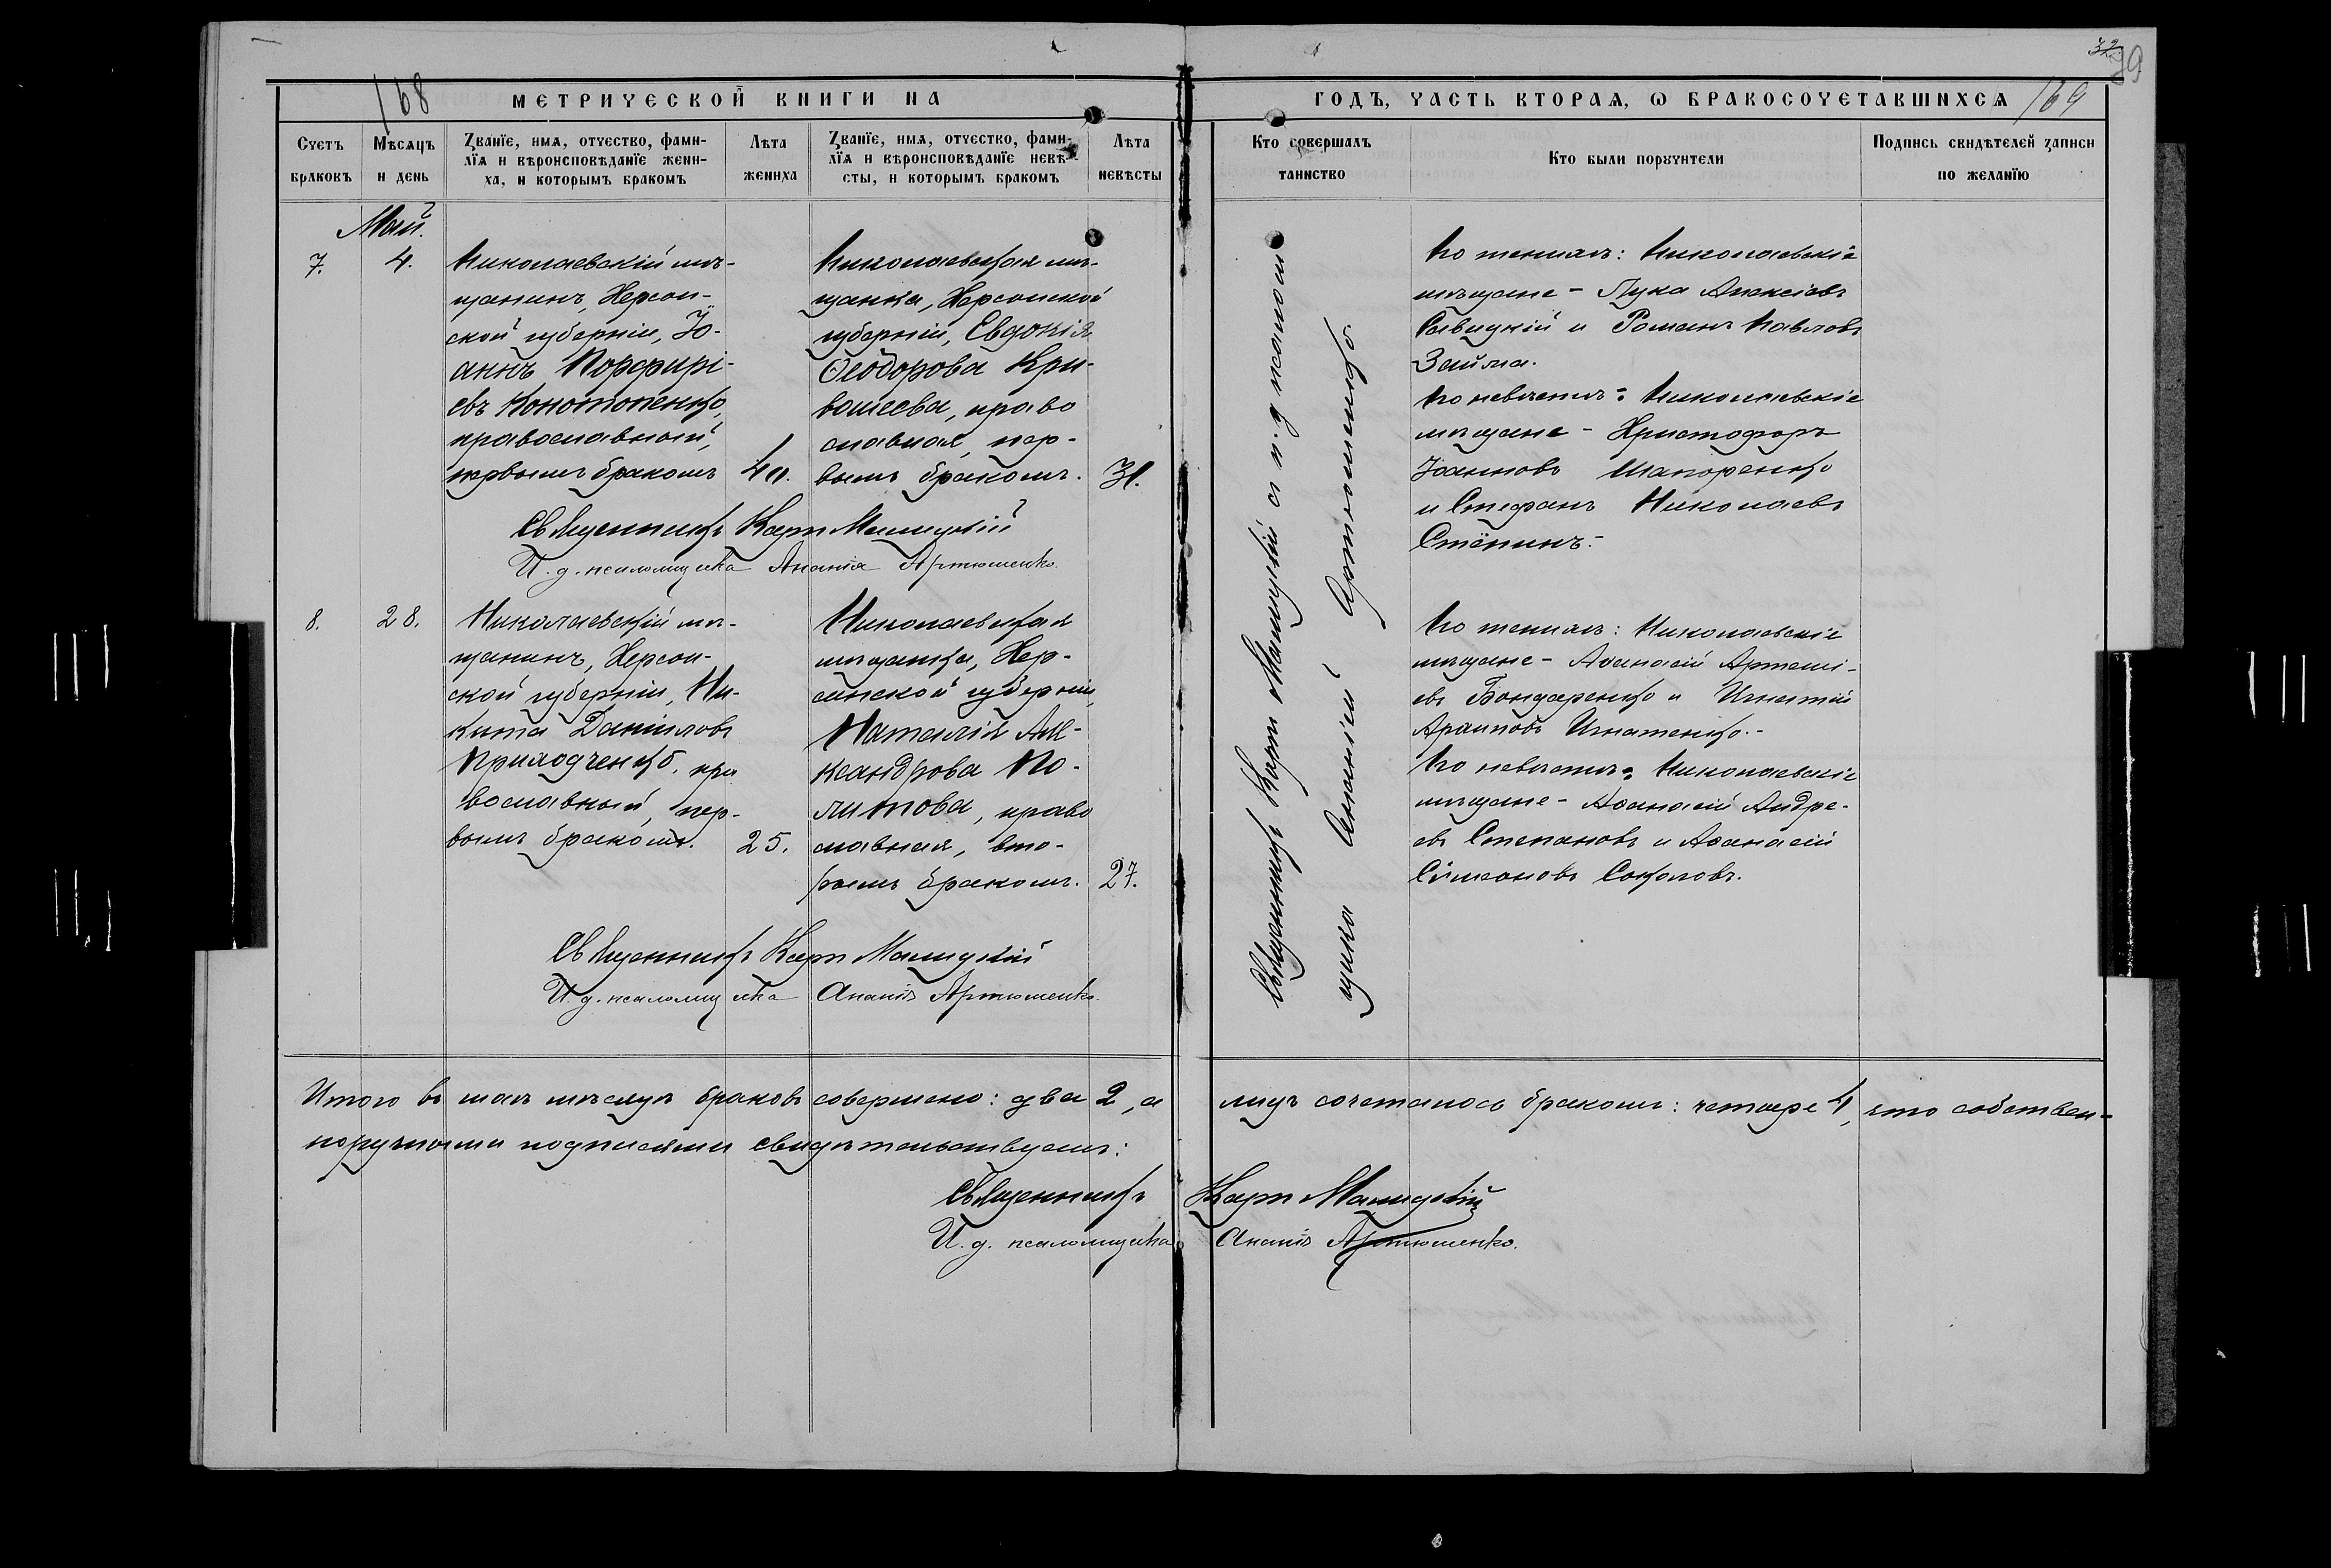 32
39
168
МЕТРИЧЕСКОЙ КНИГИ НА
ГОДЪ, ЧАСТЬ ВТОРАѦ, Ѡ БРАКОСОЧЕТАВШИХСѦ
169
Счетъ браковъ
Мѣсяцъ и день
Званїе, имѧ, отчество, фами-
лїѧ и вѣроисповѣданїе жени-
ха, и которымъ бракомъ
Лѣта жениха
Званїе, имѧ, отчество, фами-
лїѧ и вѣроисповѣданїе невѣ-
сты, и которымъ бракомъ
Лѣта невѣсты
Кто совершалъ таинство
Кто были порꙋчители
Подпись свидѣтелей записи
по желанїю
Май.
7.
4.
Николаевскій мѣ-
щанинъ, Херсон-
ской губерніи, Іо-
аннъ Порфирі-
евъ Конотопенко,
православный,
первымъ бракомъ
40.
Николаевская мѣ-
щанка, Херсонской
губерніи, Евдокія
Ѳеодорова Кри-
вошеева, право
славная, пер-
вымъ бракомъ.
31.
Священникъ Карп Малицкій
И. д. псаломщика Ананія Артюшенко.
По женихѣ: Николаевскіе
мѣщане - Лука Алексіевъ
Савицкій и Романъ Павловъ
Займа.
По невѣстѣ: Николаевскіе
мѣщане - Христофоръ
Іоанновъ Шапоренко
и Стефанъ Николаевъ
Стёпинъ.
8.
28.
Николаевскій мѣ-
щанинъ, Херсон-
ской губерніи, Ни-
кита Даниловъ
Приходченко, пра
вославный, пер-
вымъ бракомъ.
25.
Николаевская
мѣщанка, Хер-
сонской губерніи,
Наталія Але-
ксандрова По-
литова, право
славная, вто-
рымъ бракомъ.
27.
Священникъ Карп Малицкій
И. д. псаломщика Ананія Артюшенко.
Священникъ Карп Малицкій с и. д. псалом
щика Ананіей Артюшенко.
По женихѣ: Николаевскіе
мѣщане - Аѳанасій Артеми-
евъ Бондаренко и Игнатій
Архиповъ Игнатенко.-
По невѣстѣ: Николаевскіе
мѣщане - Аѳанасій Андре-
евъ Степановъ и Аѳанасій
Сѵмеоновъ Соколовъ.
Итого въ маѣ мѣсяцѣ браковъ совершено: два 2, а лицъ сочеталось бракомъ: четыре 4, что собствен-
норучными подписями свидѣтельствуемъ:
Священникъ Карп Малицкій
И. д. псаломщика Ананія Артюшенко.